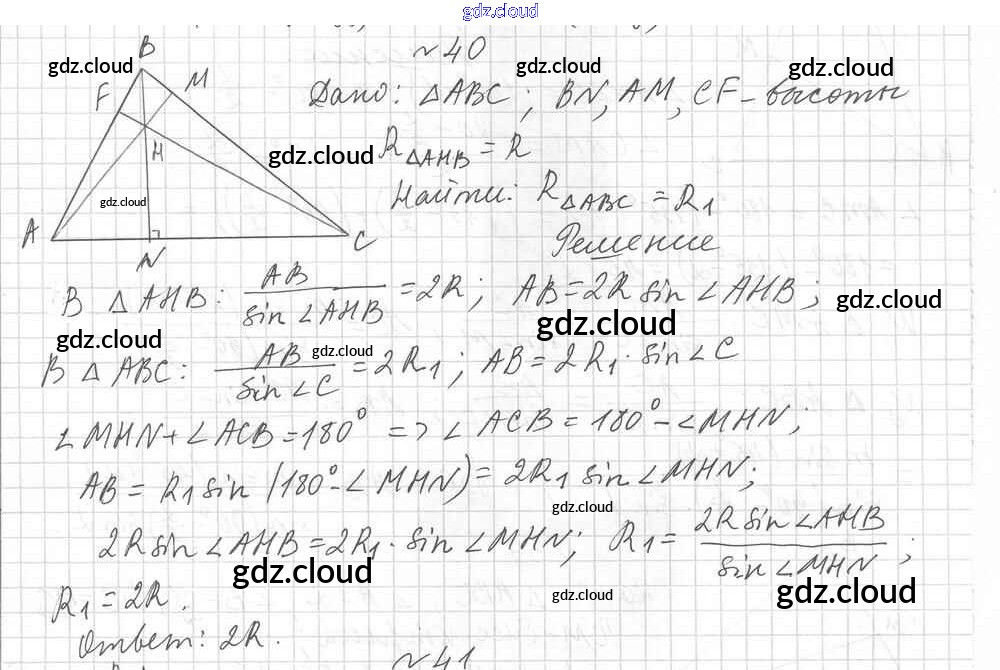 gdz.cloud
№40
B
gdz.cloud
gdz.cloud
gdz.cloud
F
M
Дано: △ABC; BN, AM, CF – высоты
H
gdz.cloud
R△AHB = R
gdz.cloud
Найти: R△ABC = R1
A
C
N
Решение
В △AHB: AB / sin∠AHB = 2R; AB = 2R sin∠AHB;
gdz.cloud
gdz.cloud
gdz.cloud
gdz.cloud
В △ABC: AB / sin∠C = 2R1; AB = 2R1 · sin∠C
∠MHN + ∠ACB = 180° => ∠ACB = 180° – ∠MHN;
AB = R1 sin (180° – ∠MHN) = 2R1 sin∠MHN;
gdz.cloud
2R sin∠AHB = 2R1 · sin∠MHN; R1 = 2R sin∠AHB / sin∠MHN;
gdz.cloud
gdz.cloud
gdz.cloud
R1 = 2R.
Ответ: 2R.
№41